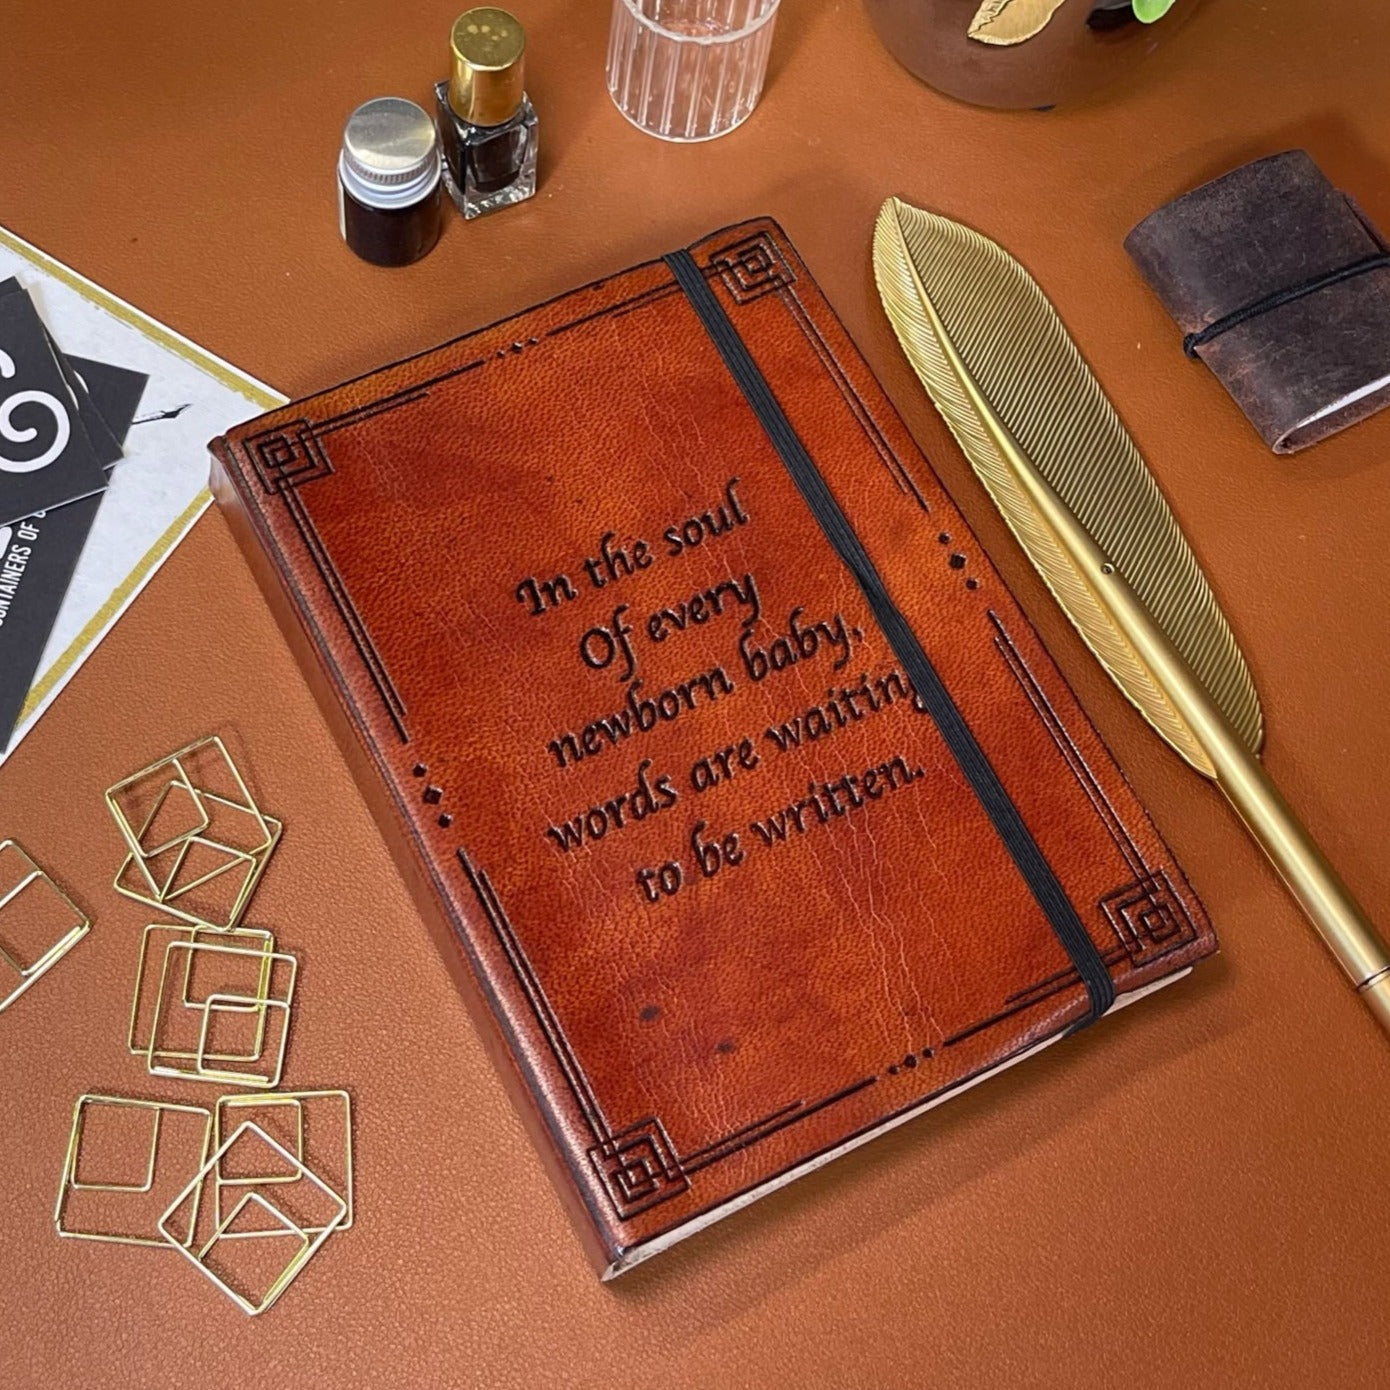 In the soul
Of every
newborn baby,
words are waiting
to be written.
&
CONTAINERS OF